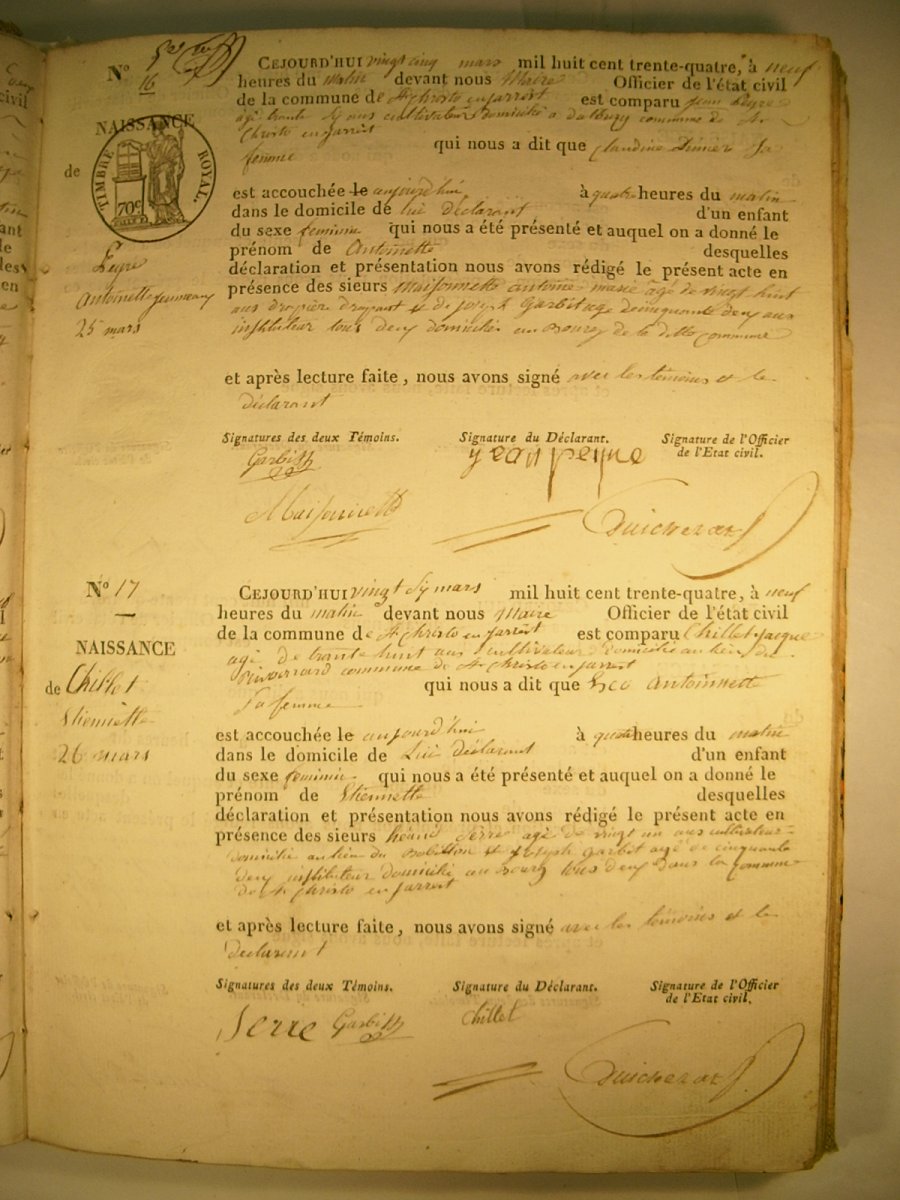 N° 16
NAISSANCE
de
TIMBRE ROYAL.
70c
Peyre
Antoinette jeanmary
25 mars
CEJOURD'HUI vingt cinq mars mil huit cent trente-quatre, à neuf
heures du matin devant nous Maire Officier de l'état civil
de la commune de St Christo en jarrest est comparu jean Peyre
agé trente ans cultivateur domicilié a commune de St
Christo en jarrest
qui nous a dit que Claudine sa
femme
est accouchée le aujourd'hui à quatre heures du matin
dans le domicile de lui déclarant d'un enfant
du sexe feminin qui nous a été présenté et auquel on a donné le
prénom de Antoinette desquelles
déclaration et présentation nous avons rédigé le présent acte en
présence des sieurs Maisonnette antoine marie agé de vingt huit
ans drapant et de joseph Garbit agé de cinquante deux ans
instituteur tous deux domiciliés au Bourg de la ditte commune
et après lecture faite, nous avons signé avec les temoins et le
déclarant
Signatures des deux Témoins. Signature du Déclarant. Signature de l'Officier
de l'Etat civil.
Garbit
jean peyre
Maisonnette
Guicherat
N° 17
NAISSANCE
de Chillet
Etiennette
26 mars
CEJOURD'HUI vingt six mars mil huit cent trente-quatre, à neuf
heures du matin devant nous Maire Officier de l'état civil
de la commune de St Christo en jarrest est comparu Chillet jacque
agé de trente huit ans cultivateur domicilié au lieu de
commune de St Christo en jarrest
qui nous a dit que antoinnette
sa femme
est accouchée le aujourd'hui à quatre heures du matin
dans le domicile de Lui déclarant d'un enfant
du sexe feminin qui nous a été présenté et auquel on a donné le
prénom de Etiennette desquelles
déclaration et présentation nous avons rédigé le présent acte en
présence des sieurs Serre agé de vingt un ans cultivateur
domicilié au lieu du et joseph Garbit agé de cinquante
deux instituteur domicilié au Bourg tous deux dans la commune
de St Christo en jarrest
et après lecture faite, nous avons signé avec les temoins et le
declarant
Signatures des deux Témoins. Signature du Déclarant. Signature de l'Officier
de l'Etat civil.
Serre Garbit
Chillet
Guicherat